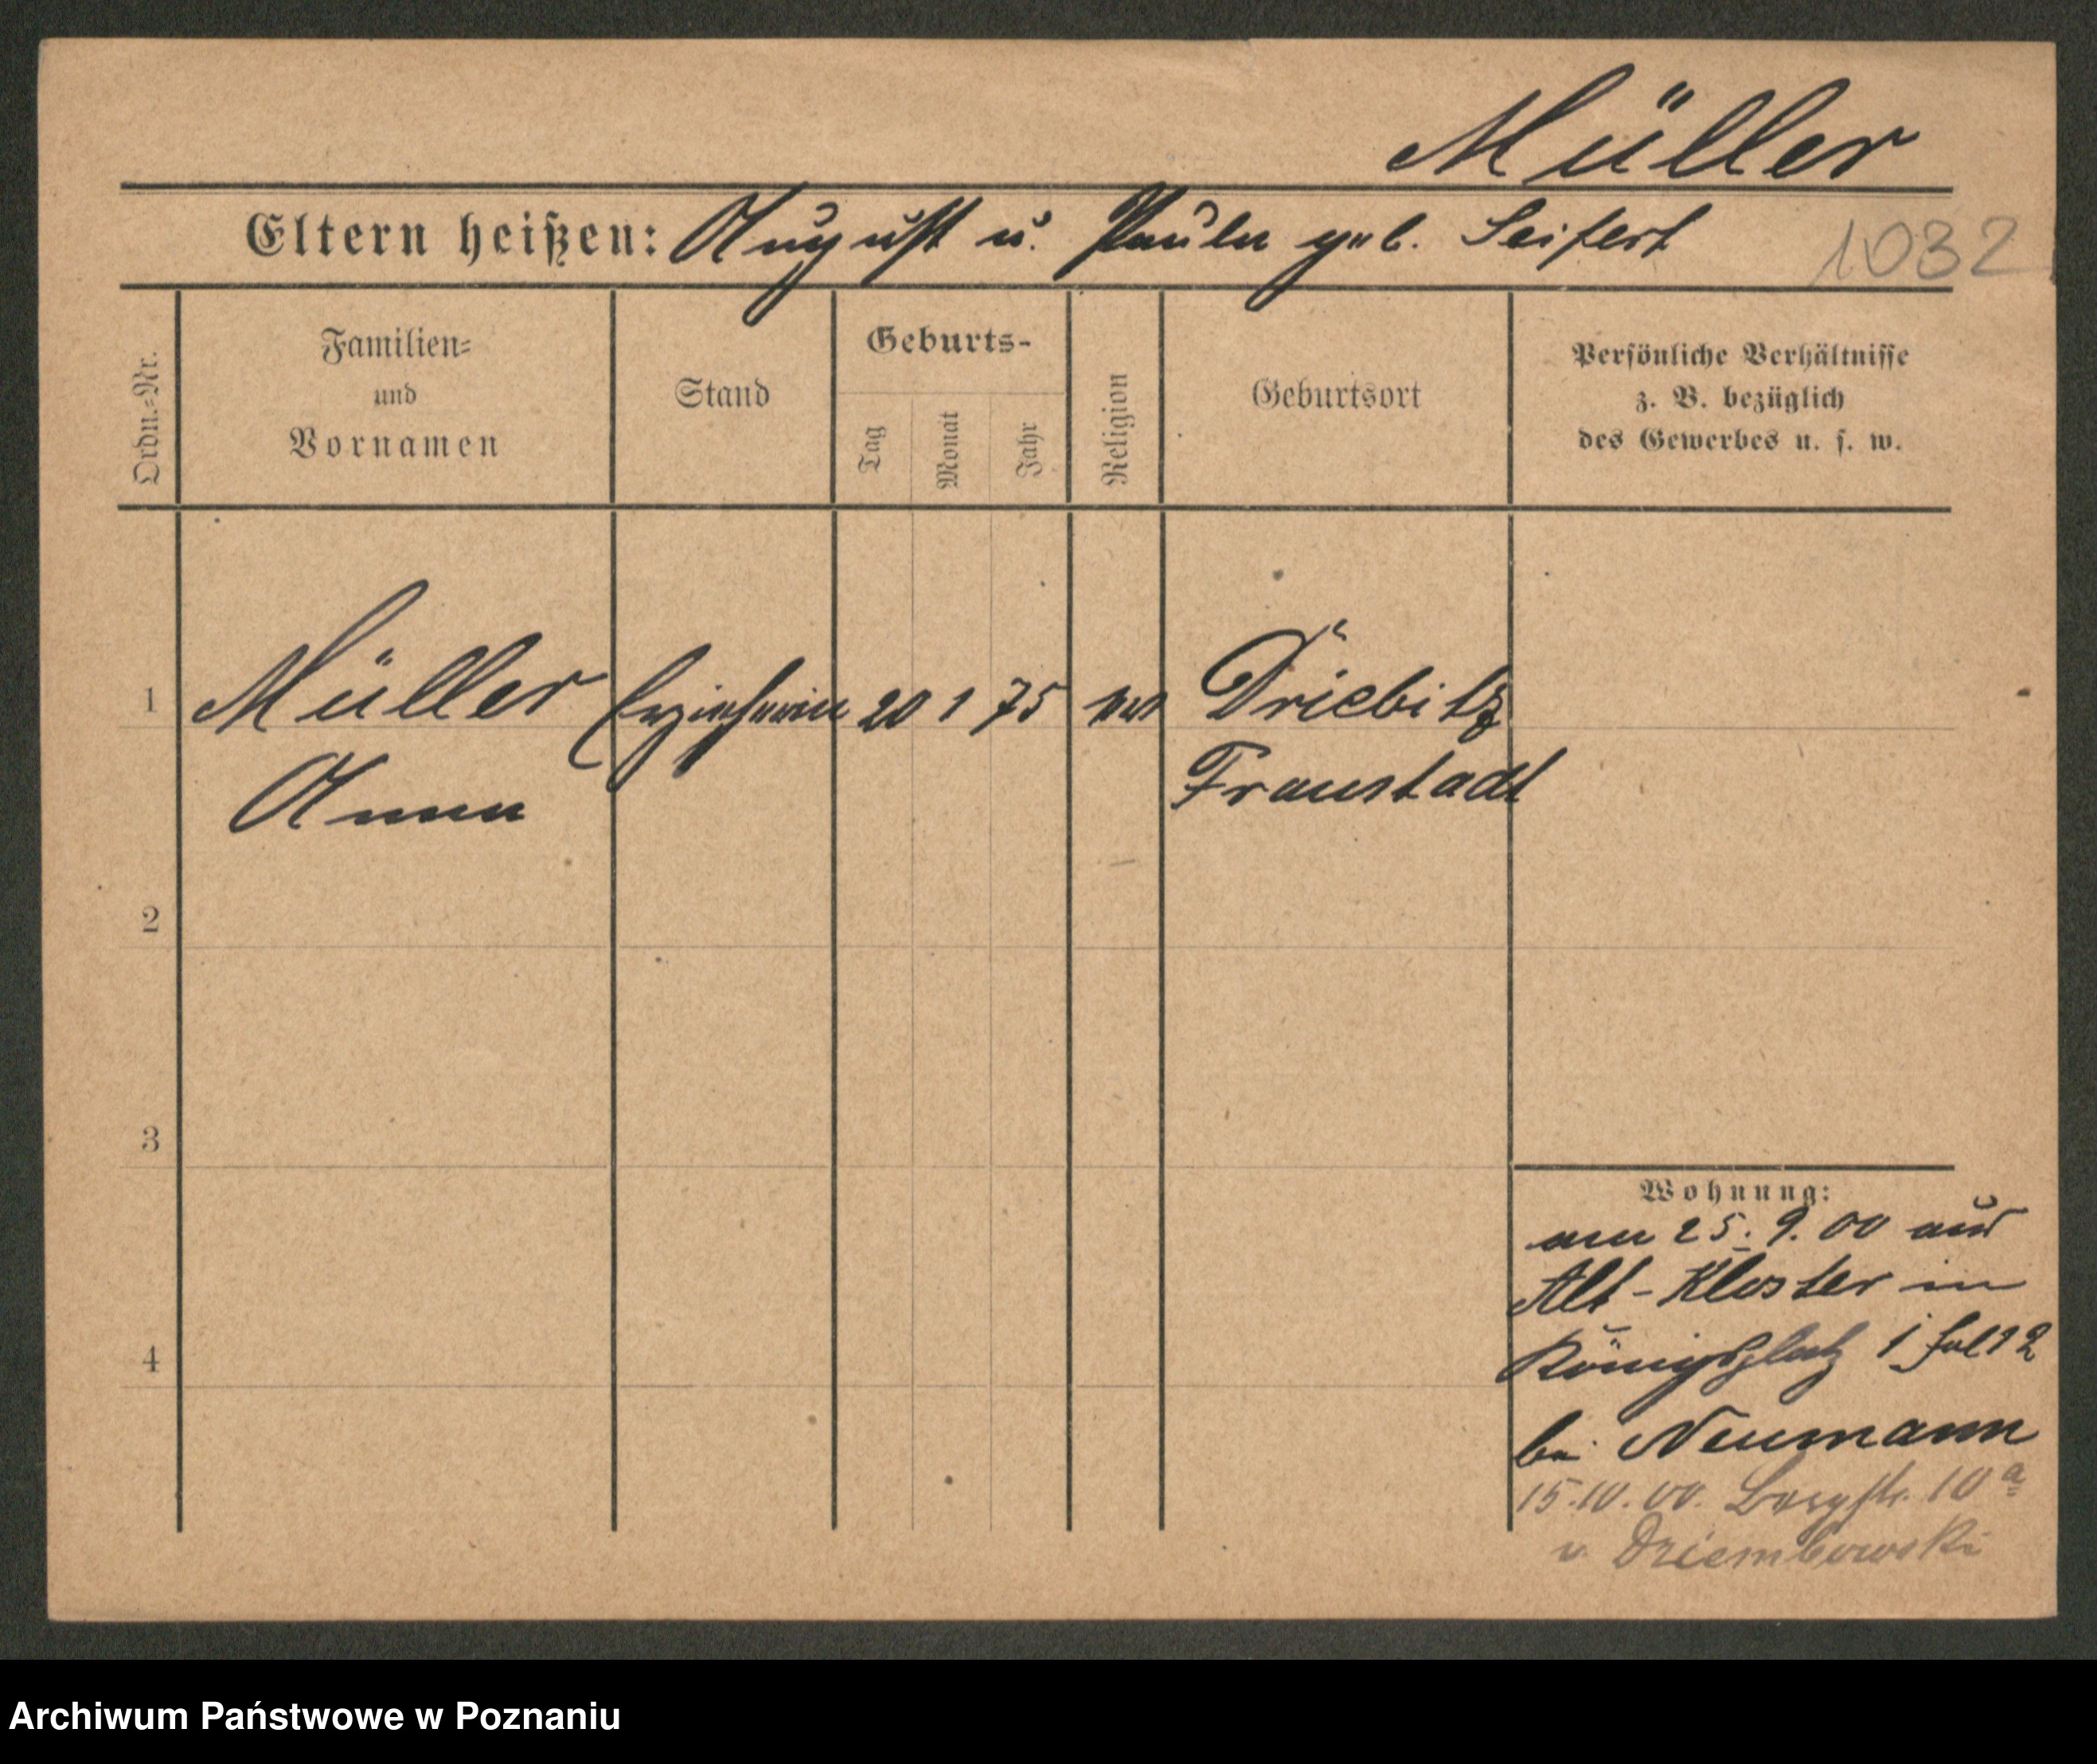 Müller
Eltern heißen: August u. Paula geb. Seifert
1032
Ordn.=Nr.
Familien=
und
Vornamen
Stand
Geburts-
Tag
Monat
Jahr
Religion
Geburtsort
Persönliche Verhältnisse
z. B. bezüglich
des Gewerbes u. s. w.
1 Müller Erzieherin 20 1 75 Driebitz
Anna Fraustadt
2
3
4
Wohnung:
am 25. 9. 00 aus
Alt-Kloster in
Königsplatz 1
bei Neumann
15.10.00. Bergstr. 10a
v. Dziembowski
Archiwum Państwowe w Poznaniu